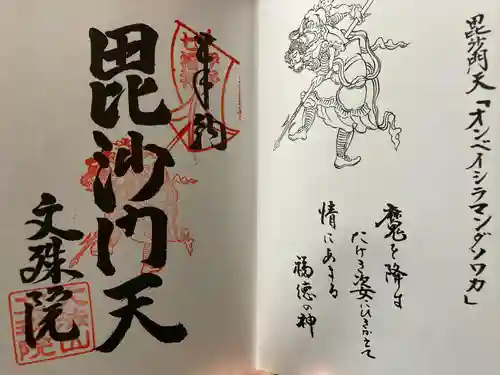 毘沙門天「オンベイシラマンダソワカ」
魔を降す
たけき姿にひきかえて
情にあまる
福徳の神
毘沙門天
文殊院